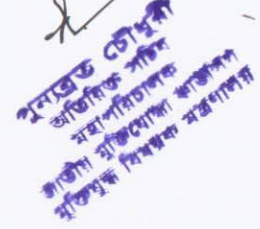 পুনাব্রত চৌধুরী
অতিরিক্ত সচিব
মহাপরিচালক
জাতীয় মুক্তিযোদ্ধা কাউন্সিল
মুক্তিযুদ্ধ বিষয়ক মন্ত্রণালয়